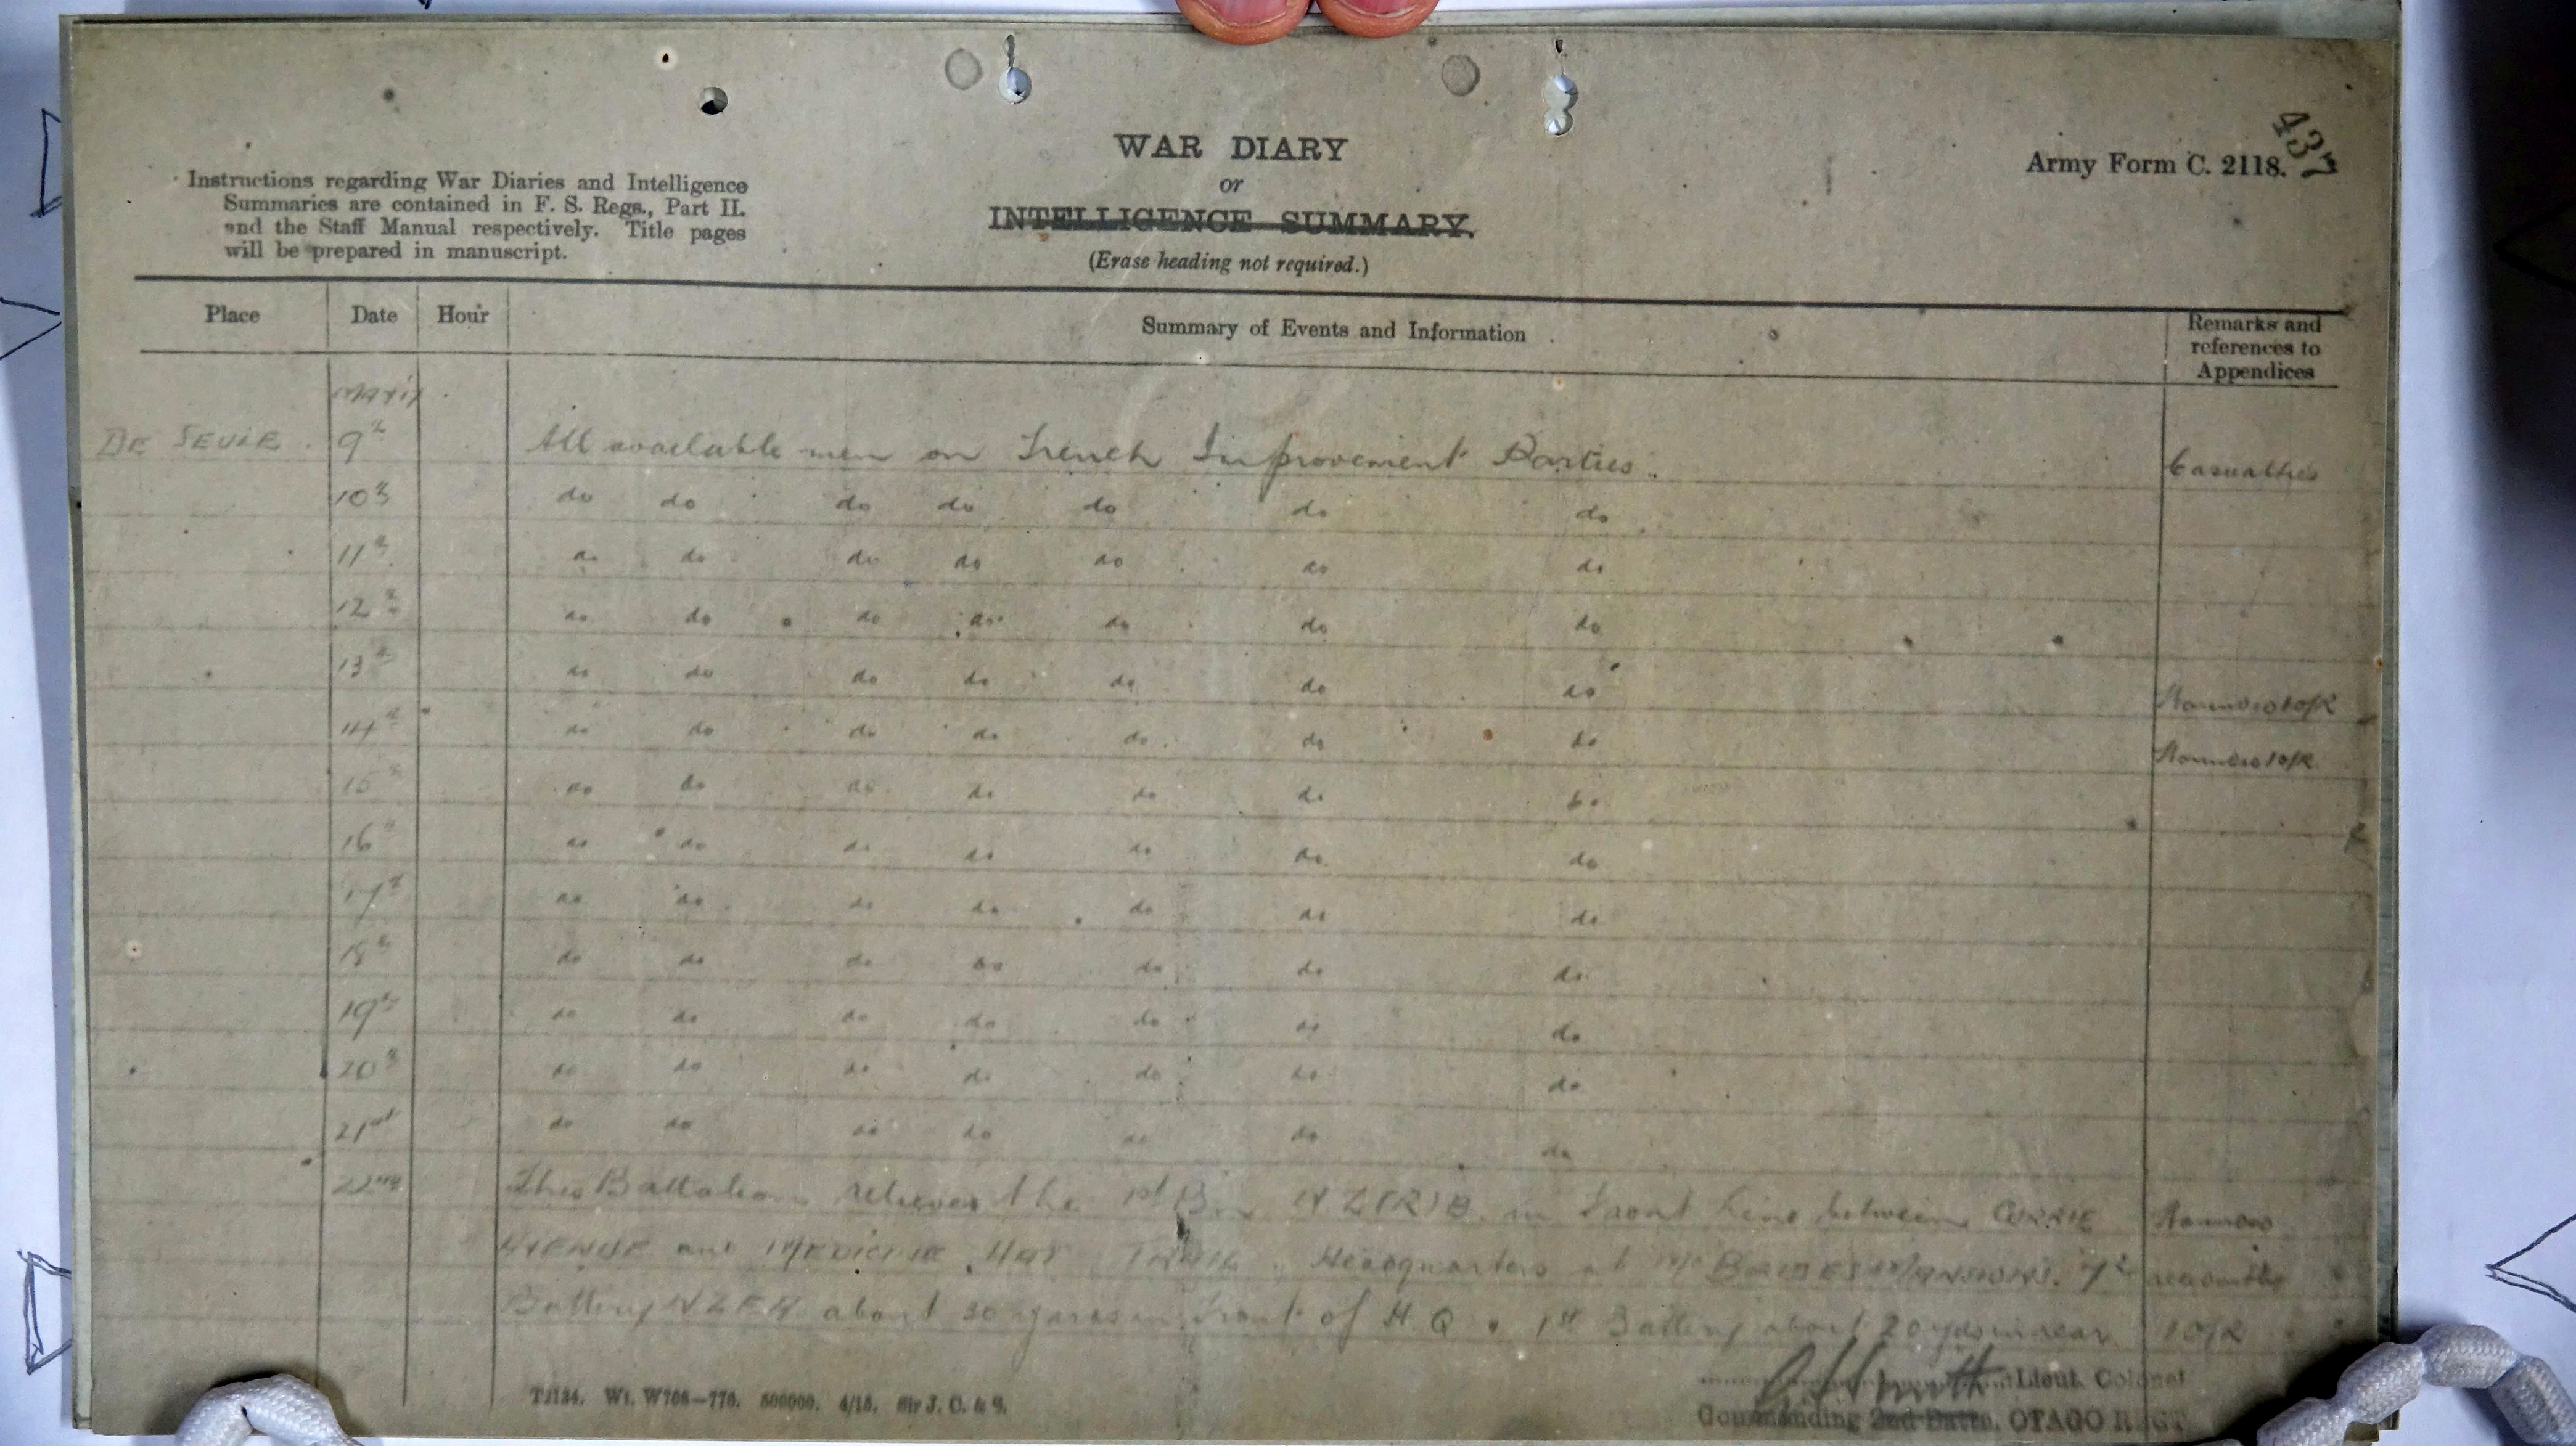 437
WAR DIARY
or
INTELLIGENCE SUMMARY.
(Erase heading not required.)
Army Form C. 2118.
Instructions regarding War Diaries and Intelligence
Summaries are contained in F. S. Regs., Part II.
and the Staff Manual respectively. Title pages
will be prepared in manuscript.
Place Date Hour Summary of Events and Information Remarks and references to Appendices
DE SEULE. 9th All available men on Trench Improvement Parties. Casualties
10th do do do do do do do
11th do do do do do do do
12th do do do do do do do
13th do do do do do do do Wounded 1 O/R
14th do do do do do do do Wounded 1 O/R
15th do do do do do do do
16th do do do do do do do
17th do do do do do do do
18th do do do do do do do
19th do do do do do do do
20th do do do do do do do
21st do do do do do do do
22nd This Battalion relieved the 1st Bn NZ(R)B in Front Line between CURRIE
AVENUE and MEDICINE HAT TRAIL. Headquarters at McBRIDES MANSIONS. 7th
Battery N.Z.F.A. about 30 yards in front of H.Q. 1st Battery about 20 yds in rear 1 O/R
T2134. Wt. W708—776. 500000. 4/15. Sir J. C. & S.
Lieut. Colonel
Commanding 2nd Battn. OTAGO REGT